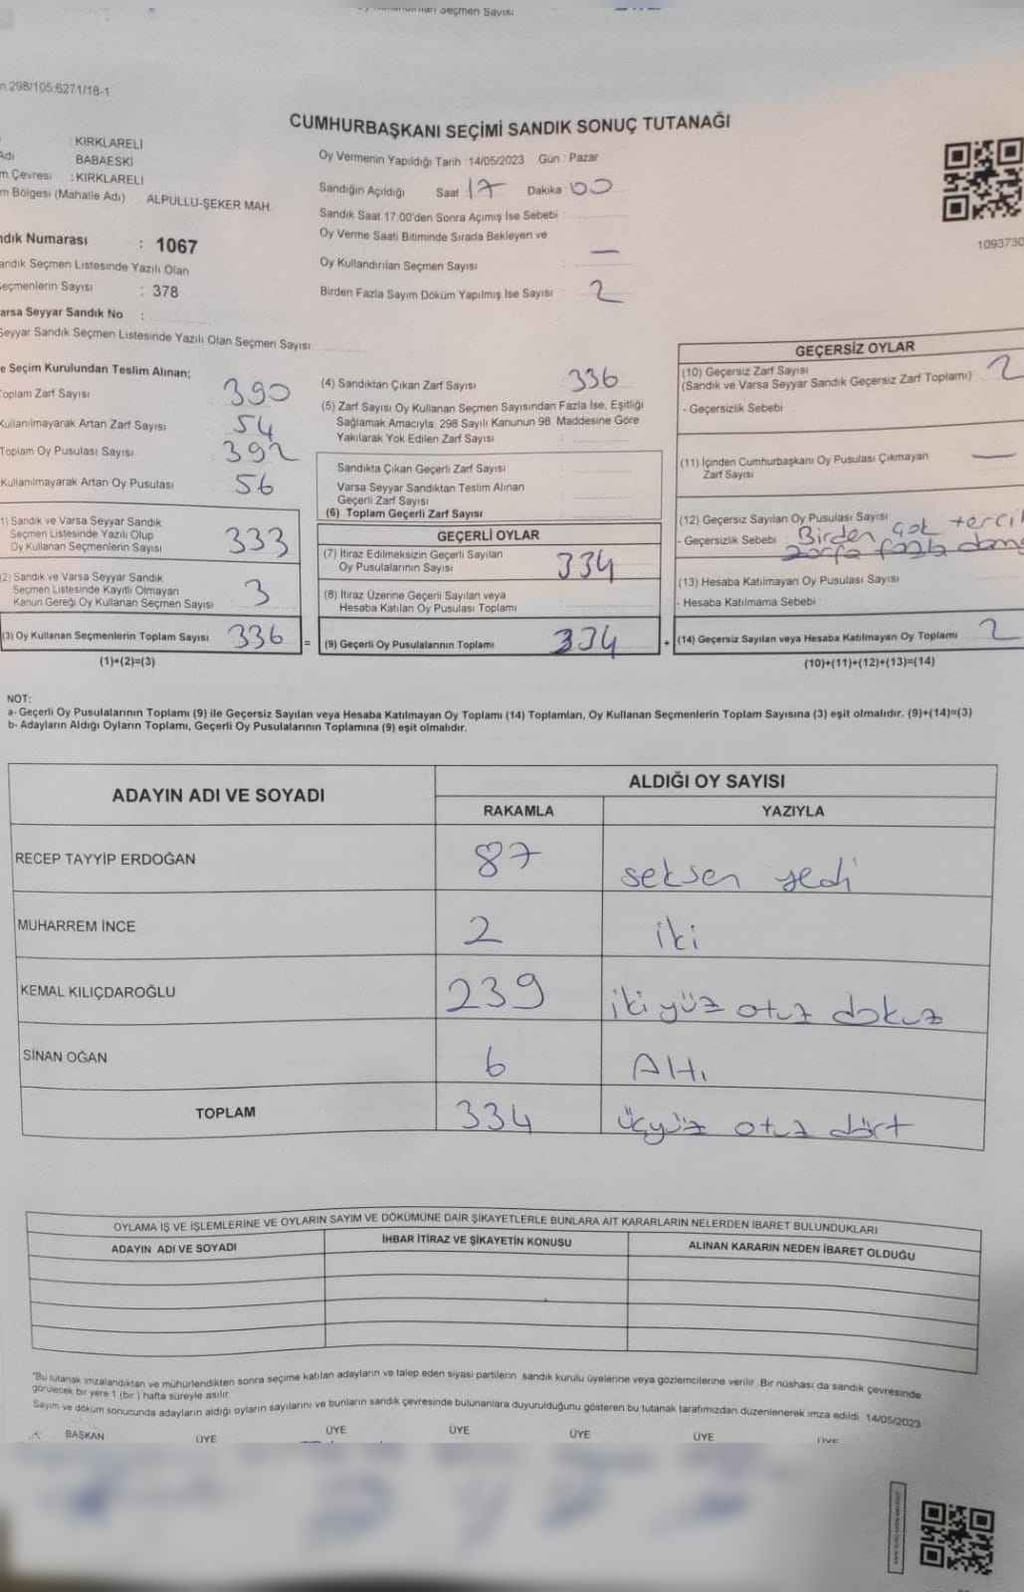 Seçmen Sayısı
298/105:6271/18-1
CUMHURBAŞKANI SEÇİMİ SANDIK SONUÇ TUTANAĞI
: KIRKLARELİ
Adı BABAESKİ
m Çevresi : KIRKLARELİ
m Bölgesi (Mahalle Adı) ALPULLU-ŞEKER MAH.
ndık Numarası : 1067
andık Seçmen Listesinde Yazılı Olan
eçmenlerin Sayısı : 378
arsa Seyyar Sandık No :
Seyyar Sandık Seçmen Listesinde Yazılı Olan Seçmen Sayısı
Oy Vermenin Yapıldığı Tarih :14/05/2023 Gün : Pazar
Sandığın Açıldığı Saat 17 Dakika 00
Sandık Saat 17:00'den Sonra Açımış İse Sebebi
Oy Verme Saati Bitiminde Sırada Bekleyen ve
Oy Kullandırılan Seçmen Sayısı : —
Birden Fazla Sayım Döküm Yapılmış İse Sayısı : 2
1093730
e Seçim Kurulundan Teslim Alınan;
Toplam Zarf Sayısı 390
Kullanılmayarak Artan Zarf Sayısı 54
Toplam Oy Pusulası Sayısı 392
Kullanılmayarak Artan Oy Pusulası 56
1) Sandık ve Varsa Seyyar Sandık
Seçmen Listesinde Yazılı Olup
Oy Kullanan Seçmenlerin Sayısı 333
2) Sandık ve Varsa Seyyar Sandık
Seçmen Listesinde Kayıtlı Olmayan
Kanun Gereği Oy Kullanan Seçmen Sayısı 3
(3) Oy Kullanan Seçmenlerin Toplam Sayısı 336 =
(1)+(2)=(3)
(4) Sandıktan Çıkan Zarf Sayısı 336
(5) Zarf Sayısı Oy Kullanan Seçmen Sayısından Fazla İse, Eşitliği
Sağlamak Amacıyla, 298 Sayılı Kanunun 98. Maddesine Göre
Yakılarak Yok Edilen Zarf Sayısı
Sandıkta Çıkan Geçerli Zarf Sayısı
Varsa Seyyar Sandıktan Teslim Alınan
Geçerli Zarf Sayısı
(6) Toplam Geçerli Zarf Sayısı
GEÇERLİ OYLAR
(7) İtiraz Edilmeksizin Geçerli Sayılan
Oy Pusulalarının Sayısı 334
(8) İtiraz Üzerine Geçerli Sayılan veya
Hesaba Katılan Oy Pusulası Toplamı
(9) Geçerli Oy Pusulalarının Toplamı 334 +
GEÇERSİZ OYLAR
(10) Geçersiz Zarf Sayısı 2
(Sandık ve Varsa Seyyar Sandık Geçersiz Zarf Toplamı)
- Geçersizlik Sebebi
(11) İçinden Cumhurbaşkanı Oy Pusulası Çıkmayan —
Zarf Sayısı
(12) Geçersiz Sayılan Oy Pusulası Sayısı
- Geçersizlik Sebebi Birden çok tercih
zarfa fazla
(13) Hesaba Katılmayan Oy Pusulası Sayısı
- Hesaba Katılmama Sebebi
(14) Geçersiz Sayılan veya Hesaba Katılmayan Oy Toplamı 2
(10)+(11)+(12)+(13)=(14)
NOT:
a- Geçerli Oy Pusulalarının Toplamı (9) ile Geçersiz Sayılan veya Hesaba Katılmayan Oy Toplamı (14) Toplamları, Oy Kullanan Seçmenlerin Toplam Sayısına (3) eşit olmalıdır. (9)+(14)=(3)
b- Adayların Aldığı Oyların Toplamı, Geçerli Oy Pusulalarının Toplamına (9) eşit olmalıdır.
ADAYIN ADI VE SOYADI ALDIĞI OY SAYISI
RAKAMLA YAZIYLA
RECEP TAYYİP ERDOĞAN 87 seksen yedi
MUHARREM İNCE 2 iki
KEMAL KILIÇDAROĞLU 239 iki yüz otuz dokuz
SİNAN OĞAN 6 Altı
TOPLAM 334 üçyüz otuz dört
OYLAMA İŞ VE İŞLEMLERİNE VE OYLARIN SAYIM VE DÖKÜMÜNE DAİR ŞİKAYETLERLE BUNLARA AİT KARARLARIN NELERDEN İBARET BULUNDUKLARI
ADAYIN ADI VE SOYADI İHBAR İTİRAZ VE ŞİKAYETİN KONUSU ALINAN KARARIN NEDEN İBARET OLDUĞU
"Bu tutanak imzalandıktan ve mühürlendikten sonra seçime katılan adayların ve talep eden siyasi partilerin sandık kurulu üyelerine veya gözlemcilerine verilir. Bir nüshası da sandık çevresinde
görülecek bir yere 1 (bir) hafta süreyle asılır.
Sayım ve döküm sonucunda adayların aldığı oyların sayılarını ve bunların sandık çevresinde bulunanlara duyurulduğunu gösteren bu tutanak tarafımızdan düzenlenerek imza edildi. 14/05/2023
BAŞKAN ÜYE ÜYE ÜYE ÜYE ÜYE ÜYE